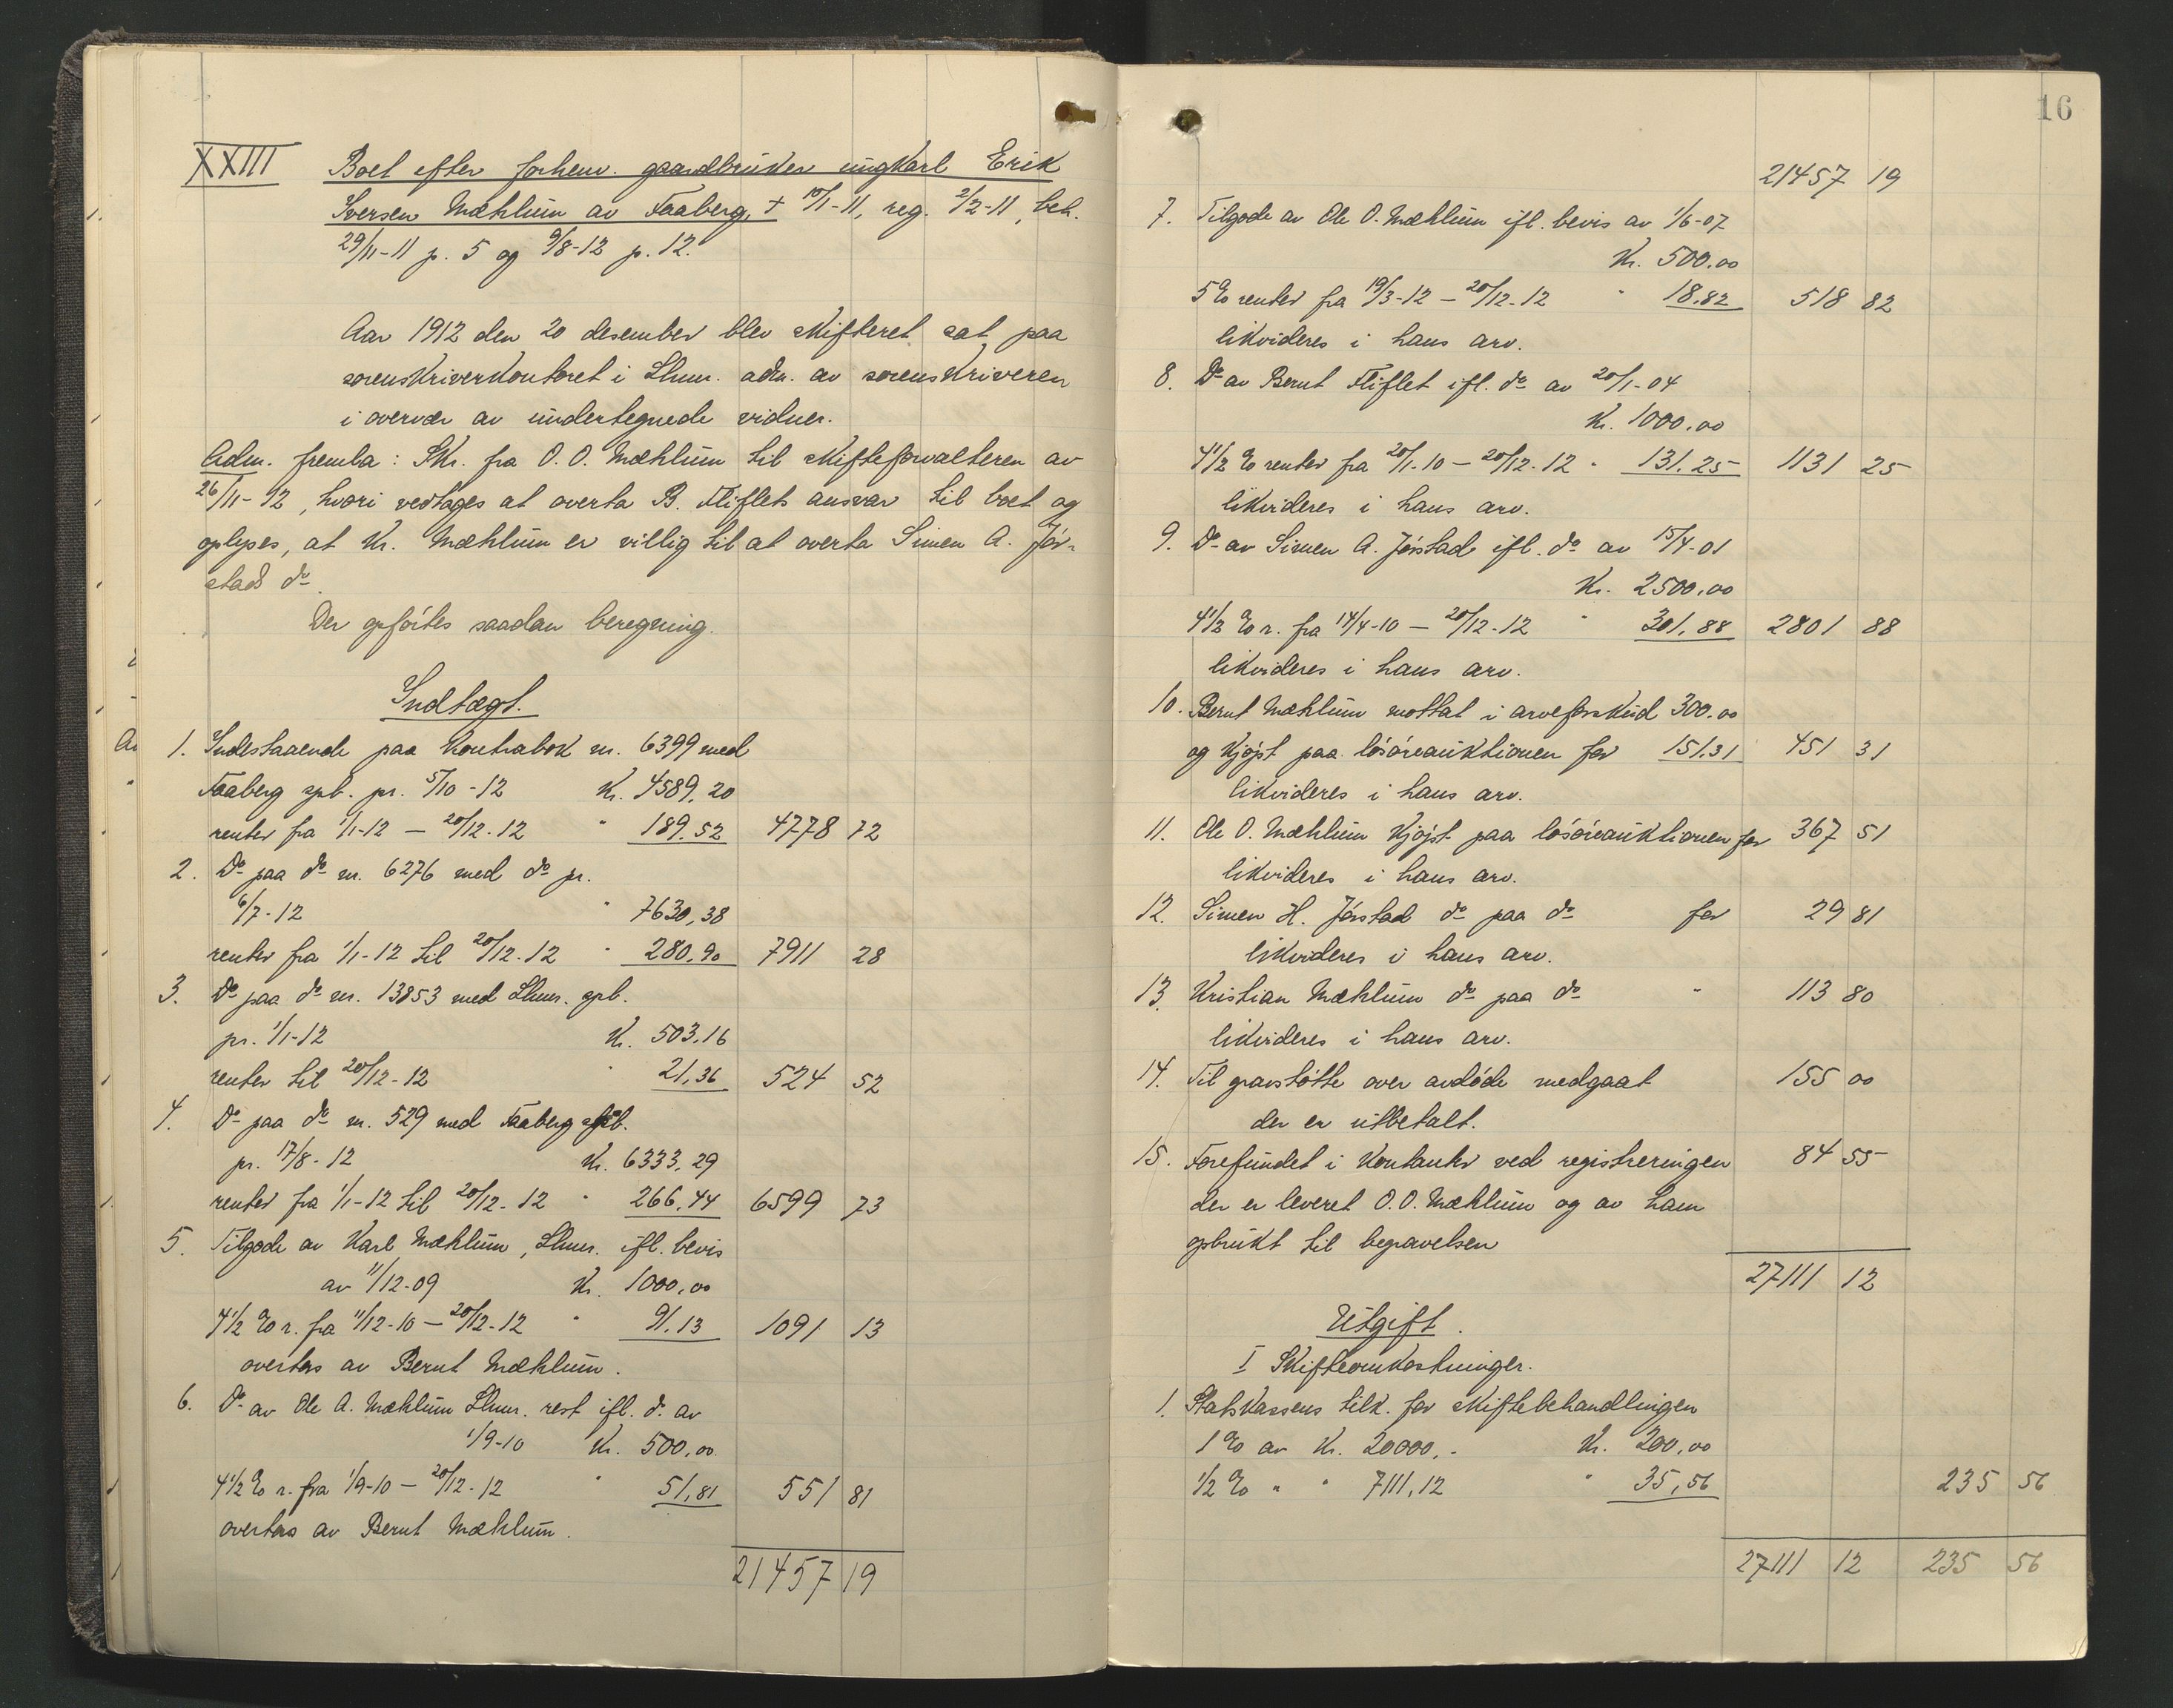 XXIII Boet efter forhenv. gaardbruker ungkarl Erik
Iversen Mæhlum av Faaberg, + 10/1-11, reg. 2/2-11, beh.
29/11-11 p. 5 og 9/8-12 p. 12.
Aar 1912 den 20 desember blev skifteret sat paa
sorenskriverkontoret i Lhmr. adm. av sorenskriveren
i overvær av undertegnede vidner.
Adm. fremla: Skr. fra O. O. Mæhlum til skifteforvalteren av
26/11-12, hvori vedtages at overta B. Fliflets ansvar til boet og
oplyses, at Kr. Mæhlum er villig til at overta Simen A. Jør-
stads do.
Der opførtes saadan beregning.
Indtægt.
1. Indestaaende paa kontrabok nr. 6399 med
Faaberg spb. pr. 5/10-12 Kr. 4589,20
renter fra 1/1-12 – 20/12-12 " 189.52 4778 72
2. Do paa do nr. 6276 med do pr.
6/7-12 " 7630,38
renter fra 1/1-12 til 20/12-12 " 280,90 7911 28
3. Do paa do nr. 13853 med Lhmr. spb.
pr. 1/1-12 Kr. 503,16
renter til 20/12-12 " 21,36 524 52
4. Do paa do nr. 529 med Faaberg spb.
pr. 17/8-12 Kr. 6333,29
renter fra 1/1-12 til 20/12-12 " 266,44 6599 73
5. Tilgode av Karl Mæhlum, Lhmr. ifl. bevis
av 11/12-09 Kr. 1000,00
4 1/2 % r. fra 11/12-10 – 20/12-12 " 91.13 1091 13
overtas av Bernt Mæhlum.
6. Do av Ole A. Mæhlum Lhmr. rest ifl. do av
1/9-10 Kr. 500,00
4 1/2 % r. fra 1/9-10 – 20/12-12 " 51,81 551 81
overtas av Bernt Mæhlum.
21457 19
16
21457 19
7. Tilgode av Ole O. Mæhlum ifl. bevis av 1/6-07
Kr. 500,00
5 % renter fra 19/3-12 – 20/12-12 " 18,82 518 82
likvideres i hans arv.
8. Do av Bernt Fliflet ifl. do av 20/1-04
Kr. 1000,00
4 1/2 % renter fra 20/1-10 – 20/12-12 " 131,25 1131 25
likvideres i hans arv.
9. Do av Simen A. Jørstad ifl. do av 15/4-01
Kr. 2500,00
4 1/2 % r. fra 14/4-10 – 20/12-12 " 301,88 2801 88
likvideres i hans arv.
10. Bernt Mæhlum mottat i arveforskud 300,00
og kjøpt paa løsøreauktionen for 151,31 451 31
likvideres i hans arv.
11. Ole O. Mæhlum kjøpt paa løsøreauktionen for 367 51
likvideres i hans arv.
12. Simen H. Jørstad do paa do for 29 81
likvideres i hans arv.
13. Kristian Mæhlum do paa do " 113 80
likvideres i hans arv.
14. Til gravstøtte over avdøde medgaat 155 00
der er utbetalt.
15. Forefundet i kontanter ved registreringen 84 55
der er leveret O. O. Mæhlum og av ham
opbrukt til begravelsen
27111 12
Utgift.
I Skifteomkostninger.
1. Statskassens tilk. for skiftebehandlingen
1 % av Kr. 20000,- Kr. 200,00
1/2 % " " 7111,12 " 35,56 235 56
27111 12 235 56